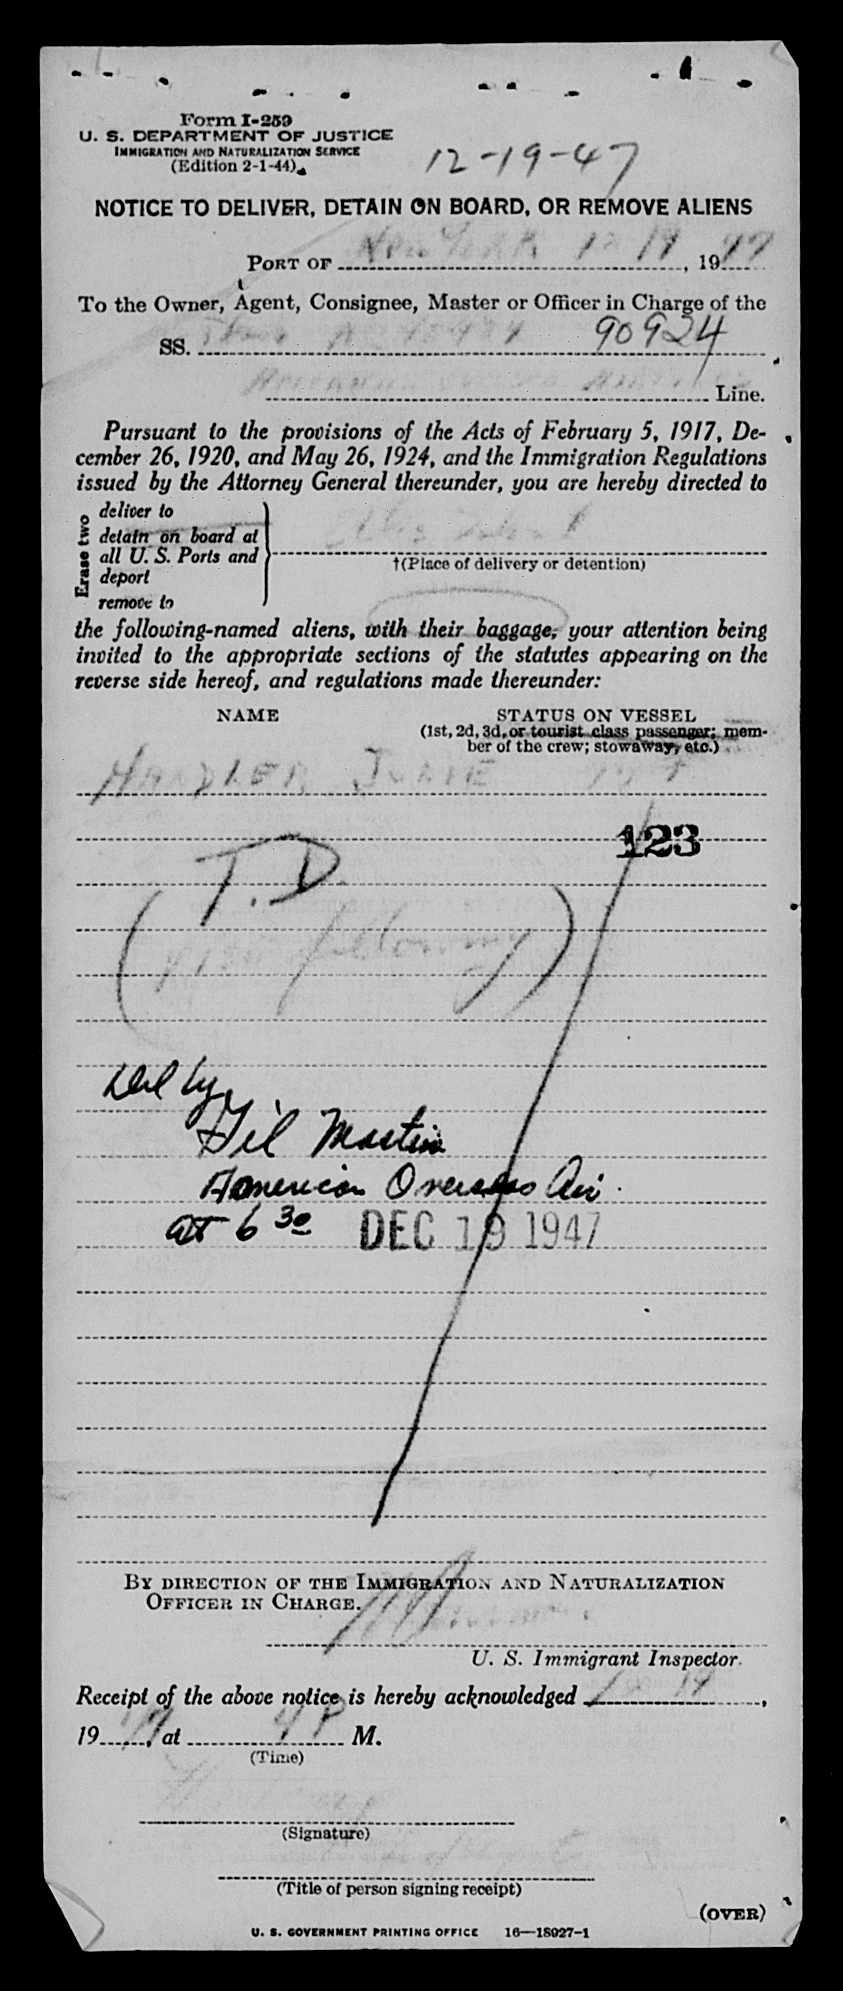 Form I-259
U. S. DEPARTMENT OF JUSTICE
IMMIGRATION AND NATURALIZATION SERVICE
(Edition 2-1-44)
12-19-47
NOTICE TO DELIVER, DETAIN ON BOARD, OR REMOVE ALIENS
PORT OF New York 12 19, 1947
To the Owner, Agent, Consignee, Master or Officer in Charge of the
SS. 90924
American Overseas Airlines Line.
Pursuant to the provisions of the Acts of February 5, 1917, De-
cember 26, 1920, and May 26, 1924, and the Immigration Regulations
issued by the Attorney General thereunder, you are hereby directed to
Erase two
deliver to
detain on board at
all U. S. Ports and
deport
remove to
Ellis Island
†(Place of delivery or detention)
the following-named aliens, with their baggage, your attention being
invited to the appropriate sections of the statutes appearing on the
reverse side hereof, and regulations made thereunder:
NAME STATUS ON VESSEL
(1st, 2d, 3d, or tourist class passenger; mem-
ber of the crew; stowaway, etc.)
HANDLER JUNE 1st
123
T.D.
Del by
Gil Martin
American Overseas Air.
at 6 30 DEC 19 1947
BY DIRECTION OF THE IMMIGRATION AND NATURALIZATION
OFFICER IN CHARGE.
U. S. Immigrant Inspector.
Receipt of the above notice is hereby acknowledged 12 19,
1947, at 4 P M.
(Time)
(Signature)
(Title of person signing receipt)
(OVER)
U. S. GOVERNMENT PRINTING OFFICE 16—18927-1